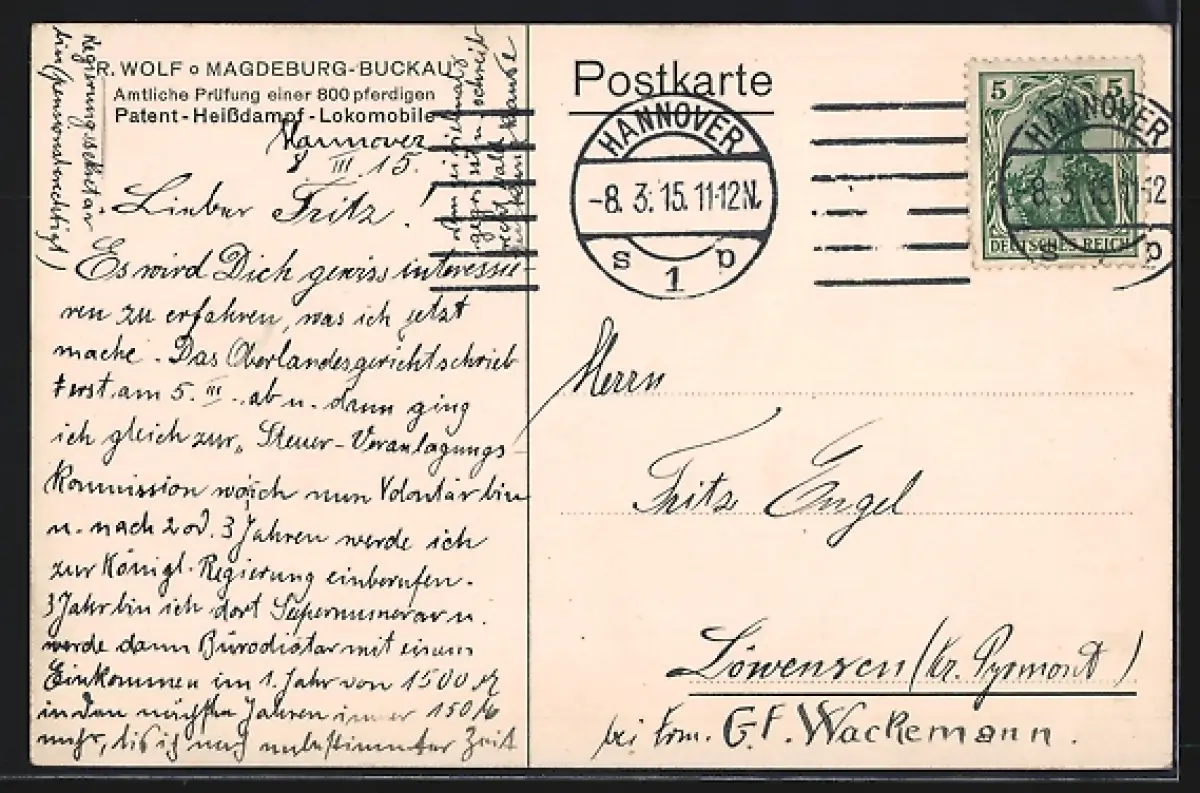 R. WOLF o MAGDEBURG-BUCKAU
Amtliche Prüfung einer 800 pferdigen
Patent-Heißdampf-Lokomobile
Hannover
8 III. 15.
Lieber Fritz!
Es wird Dich gewiss interessie-
ren zu erfahren, was ich jetzt
mache. Das Oberlandesgericht schrieb
erst am 5. III. ab u. dann ging
ich gleich zur „Steuer-Veranlagungs-
Kommission wo ich nun Volontär bin
u. nach 2 od. 3 Jahren werde ich
zur Königl. Regierung einberufen.
3 Jahr bin ich dort Supernumerar u.
werde dann Bürodiätar mit einem
Einkommen im 1. Jahr von 1500 M
in den nächsten Jahren immer 150 M
mehr, bis ich nach unbestimmter Zeit
Regierungssekretär
bin (pensionsberechtigt)
u. schreib
recht bald
Postkarte
HANNOVER
-8. 3. 15. 11-12 N.
S 1 p
5 5
DEUTSCHES REICH
HANNOVER
8. 3. 15. 11-12
S 1 p
Herrn
Fritz Engel
Löwensen (Kr. Pyrmont)
bei Frm. G. F. Wackemann.